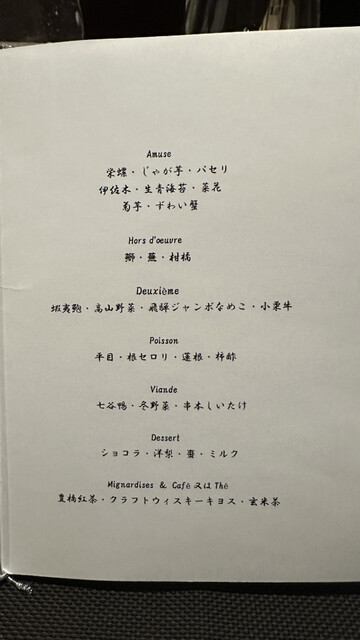 Amuse
栄螺・じゃが芋・パセリ
伊佐木・生青海苔・菜花
菊芋・ずわい蟹
Hors d'oeuvre
鰤・蕪・柑橘
Deuxième
蝦夷鮑・高山野菜・飛騨ジャンボなめこ・小栗牛
Poisson
平目・根セロリ・蓮根・柿酢
Viande
七谷鴨・冬野菜・串本しいたけ
Dessert
ショコラ・洋梨・棗・ミルク
Mignardises & Café 又は Thé
豊橋紅茶・クラフトウィスキーキヨス・玄米茶